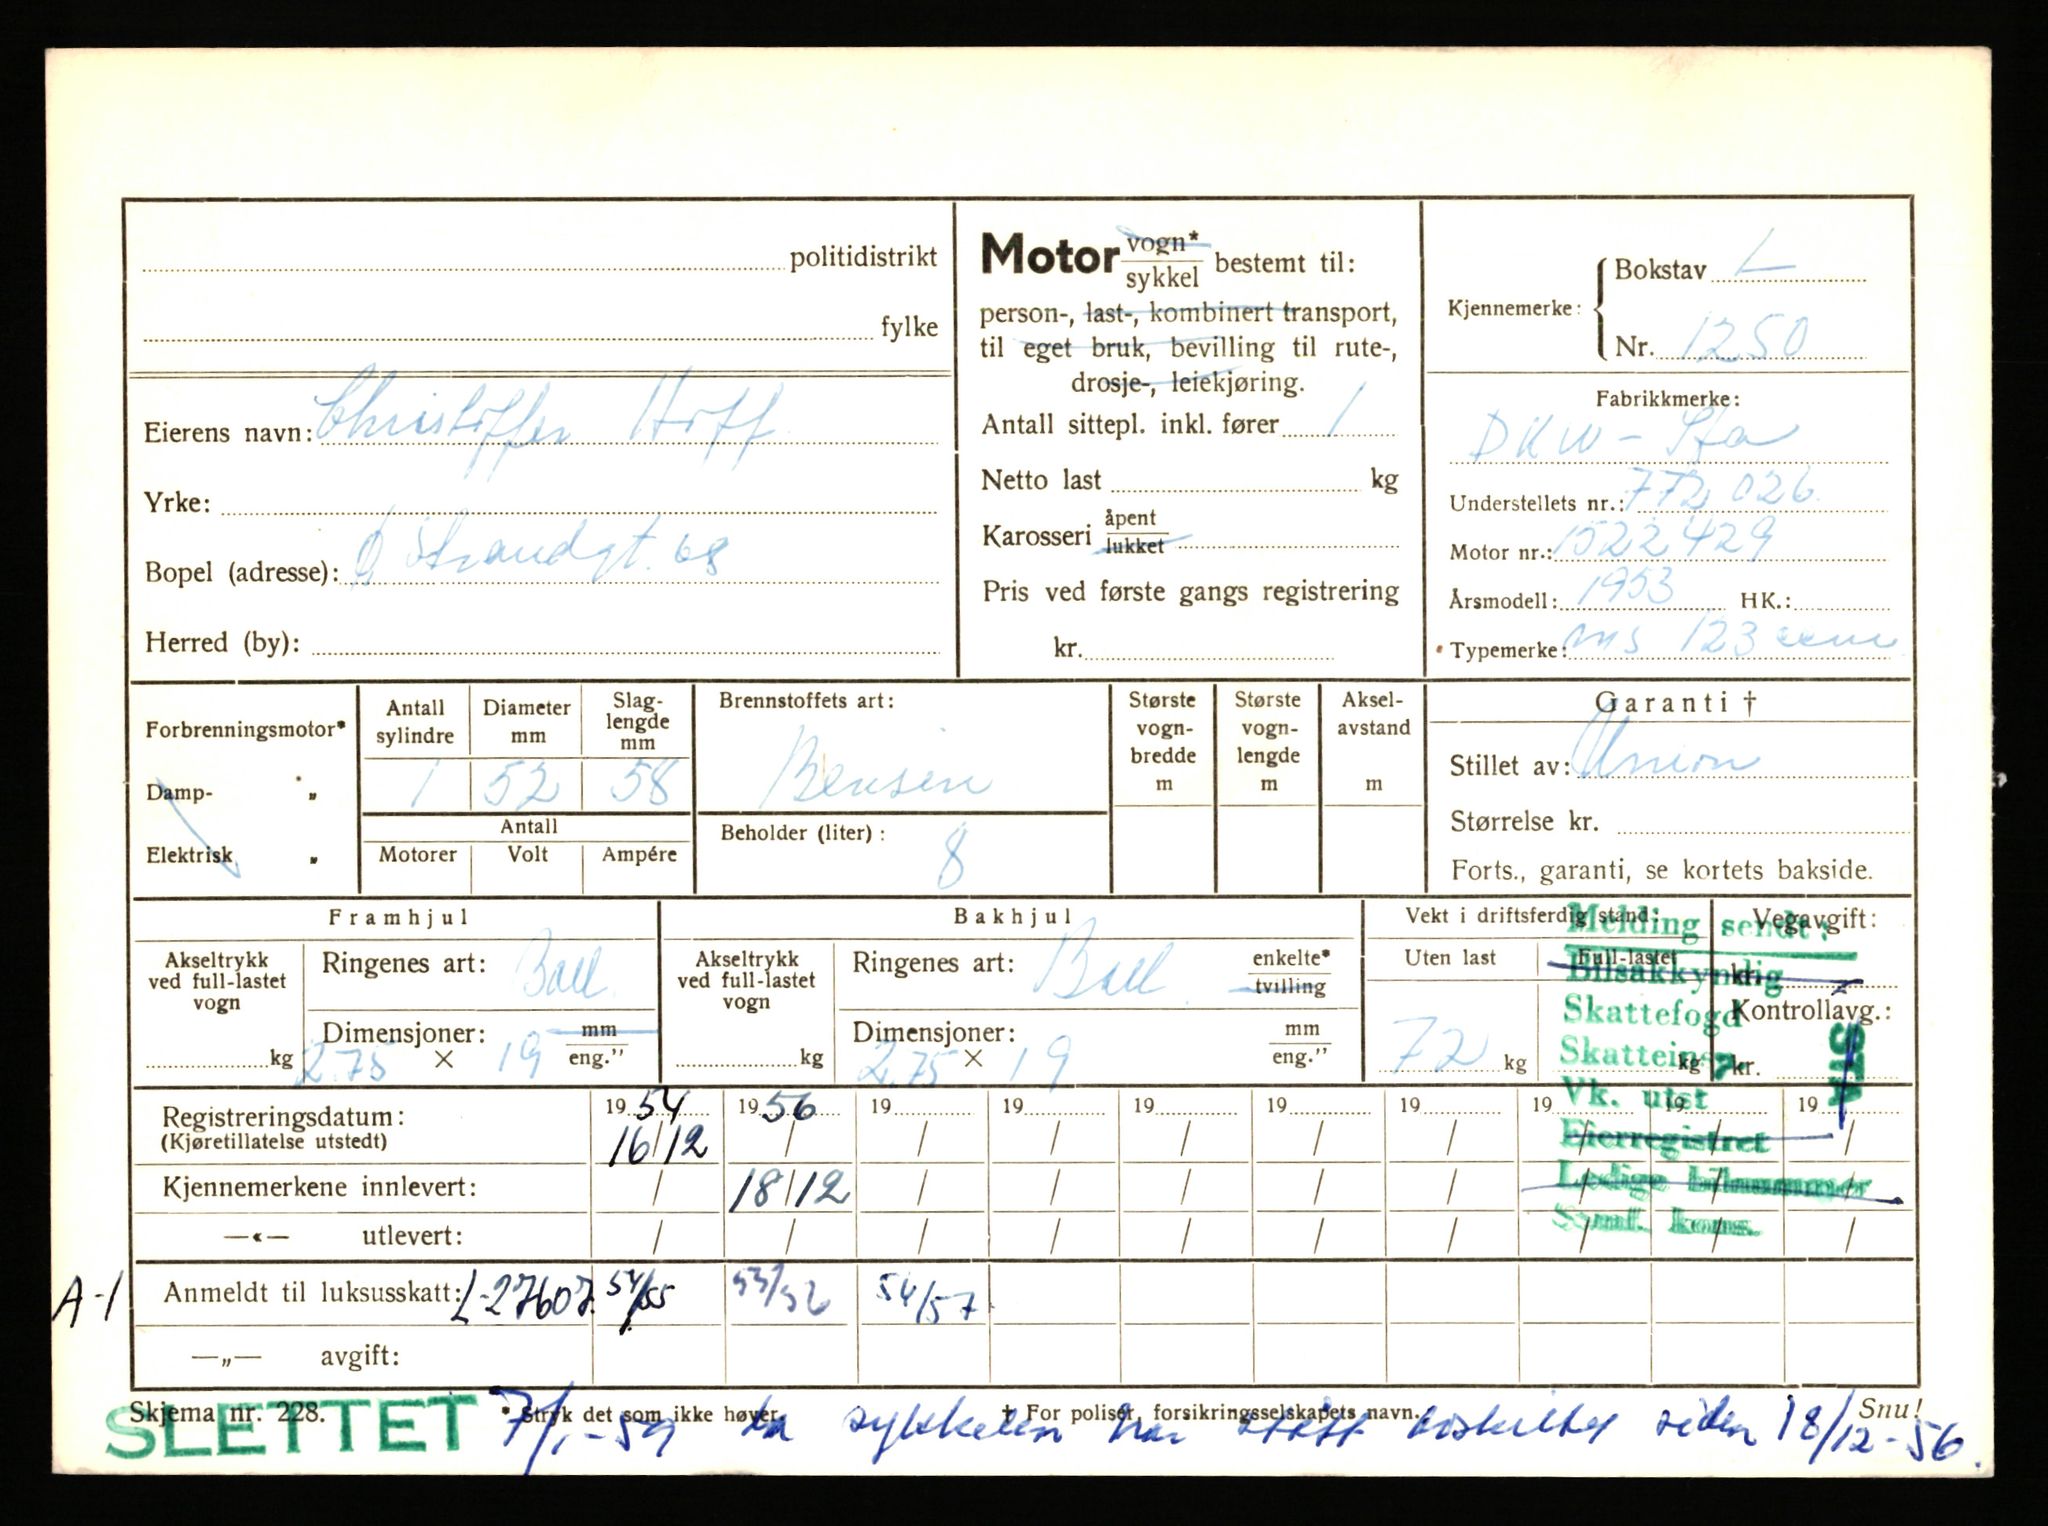 politidistrikt
fylke
Eierens navn: Christoffer Hoff
Yrke:
Bopel (adresse): Ø Strandgt. 68
Herred (by):
Motor vogn* / sykkel bestemt til:
person-, last-, kombinert transport,
til eget bruk, bevilling til rute-,
drosje-, leiekjøring.
Antall sittepl. inkl. fører 1
Netto last kg
Karosseri åpent / lukket
Pris ved første gangs registrering
kr.
Kjennemerke: Bokstav L
Nr. 1250
Fabrikkmerke:
DKW - Sta
Understellets nr.: 772 026
Motor nr.: 1522429
Årsmodell: 1953 HK.:
Typemerke: ms 123 ccm
Forbrenningsmotor*
Damp- „
Elektrisk „
Antall sylindre 1
Diameter mm 52
Slag-lengde mm 58
Antall
Motorer Volt Ampére
Brennstoffets art:
Bensin
Beholder (liter): 8
Største vogn-bredde m
Største vogn-lengde m
Aksel-avstand m
Garanti †
Stillet av: Union
Størrelse kr.
Forts., garanti, se kortets bakside.
Framhjul
Akseltrykk ved full-lastet vogn kg
Ringenes art: Ball.
Dimensjoner: mm / eng."
2.75 × 19
Bakhjul
Akseltrykk ved full-lastet vogn kg
Ringenes art: Ball. enkelte* / tvilling
Dimensjoner: mm / eng."
2.75 × 19
Vekt i driftsferdig stand:
Uten last Full-lastet
72 kg kg
Vegavgift:
kr.
Kontrollavg.:
kr.
Melding sendt:
Bilsakkyndig
Skattefogd
Skatteinsp
Vk. utst
Eierregistret
Ledige bilnummer
Saml. kons.
Registreringsdatum: 19 54 19 56 19 19 19 19 19 19 19 19
(Kjøretillatelse utstedt) 16/12 / / / / / / / / /
Kjennemerkene innlevert: / 18/12 / / / / / / / /
—«— utlevert: / / / / / / / / / /
A-1 Anmeldt til luksusskatt: L-27607. 54/55 53/56 54/57.
—„— avgift:
Skjema nr. 228. * Stryk det som ikke høver. † For poliser, forsikringsselskapets navn. Snu!
SLETTET 7/1-59 da sykkelen har stått avskiltet siden 18/12-56.